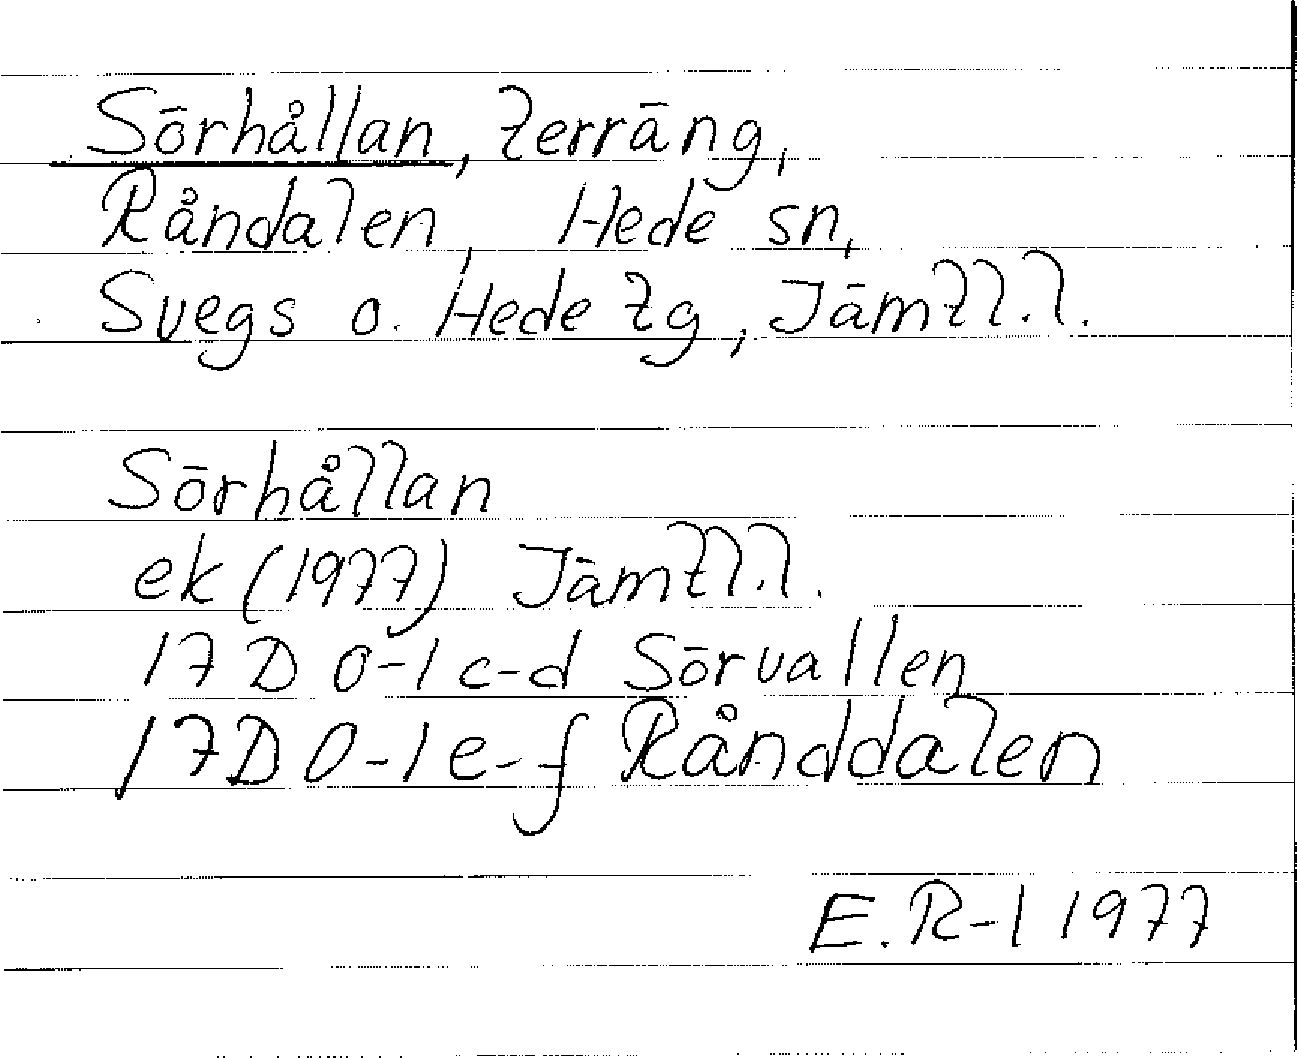 Sörhållan, terräng,
Råndalen, Hede sn,
Svegs o. Hede tg, Jämtl.l.
Sörhållan
ek (1977) Jämtl.l.
17 D 0-1 c-d Sörvallen
17D 0-1 e-f Rånddalen
E. R-l 1977